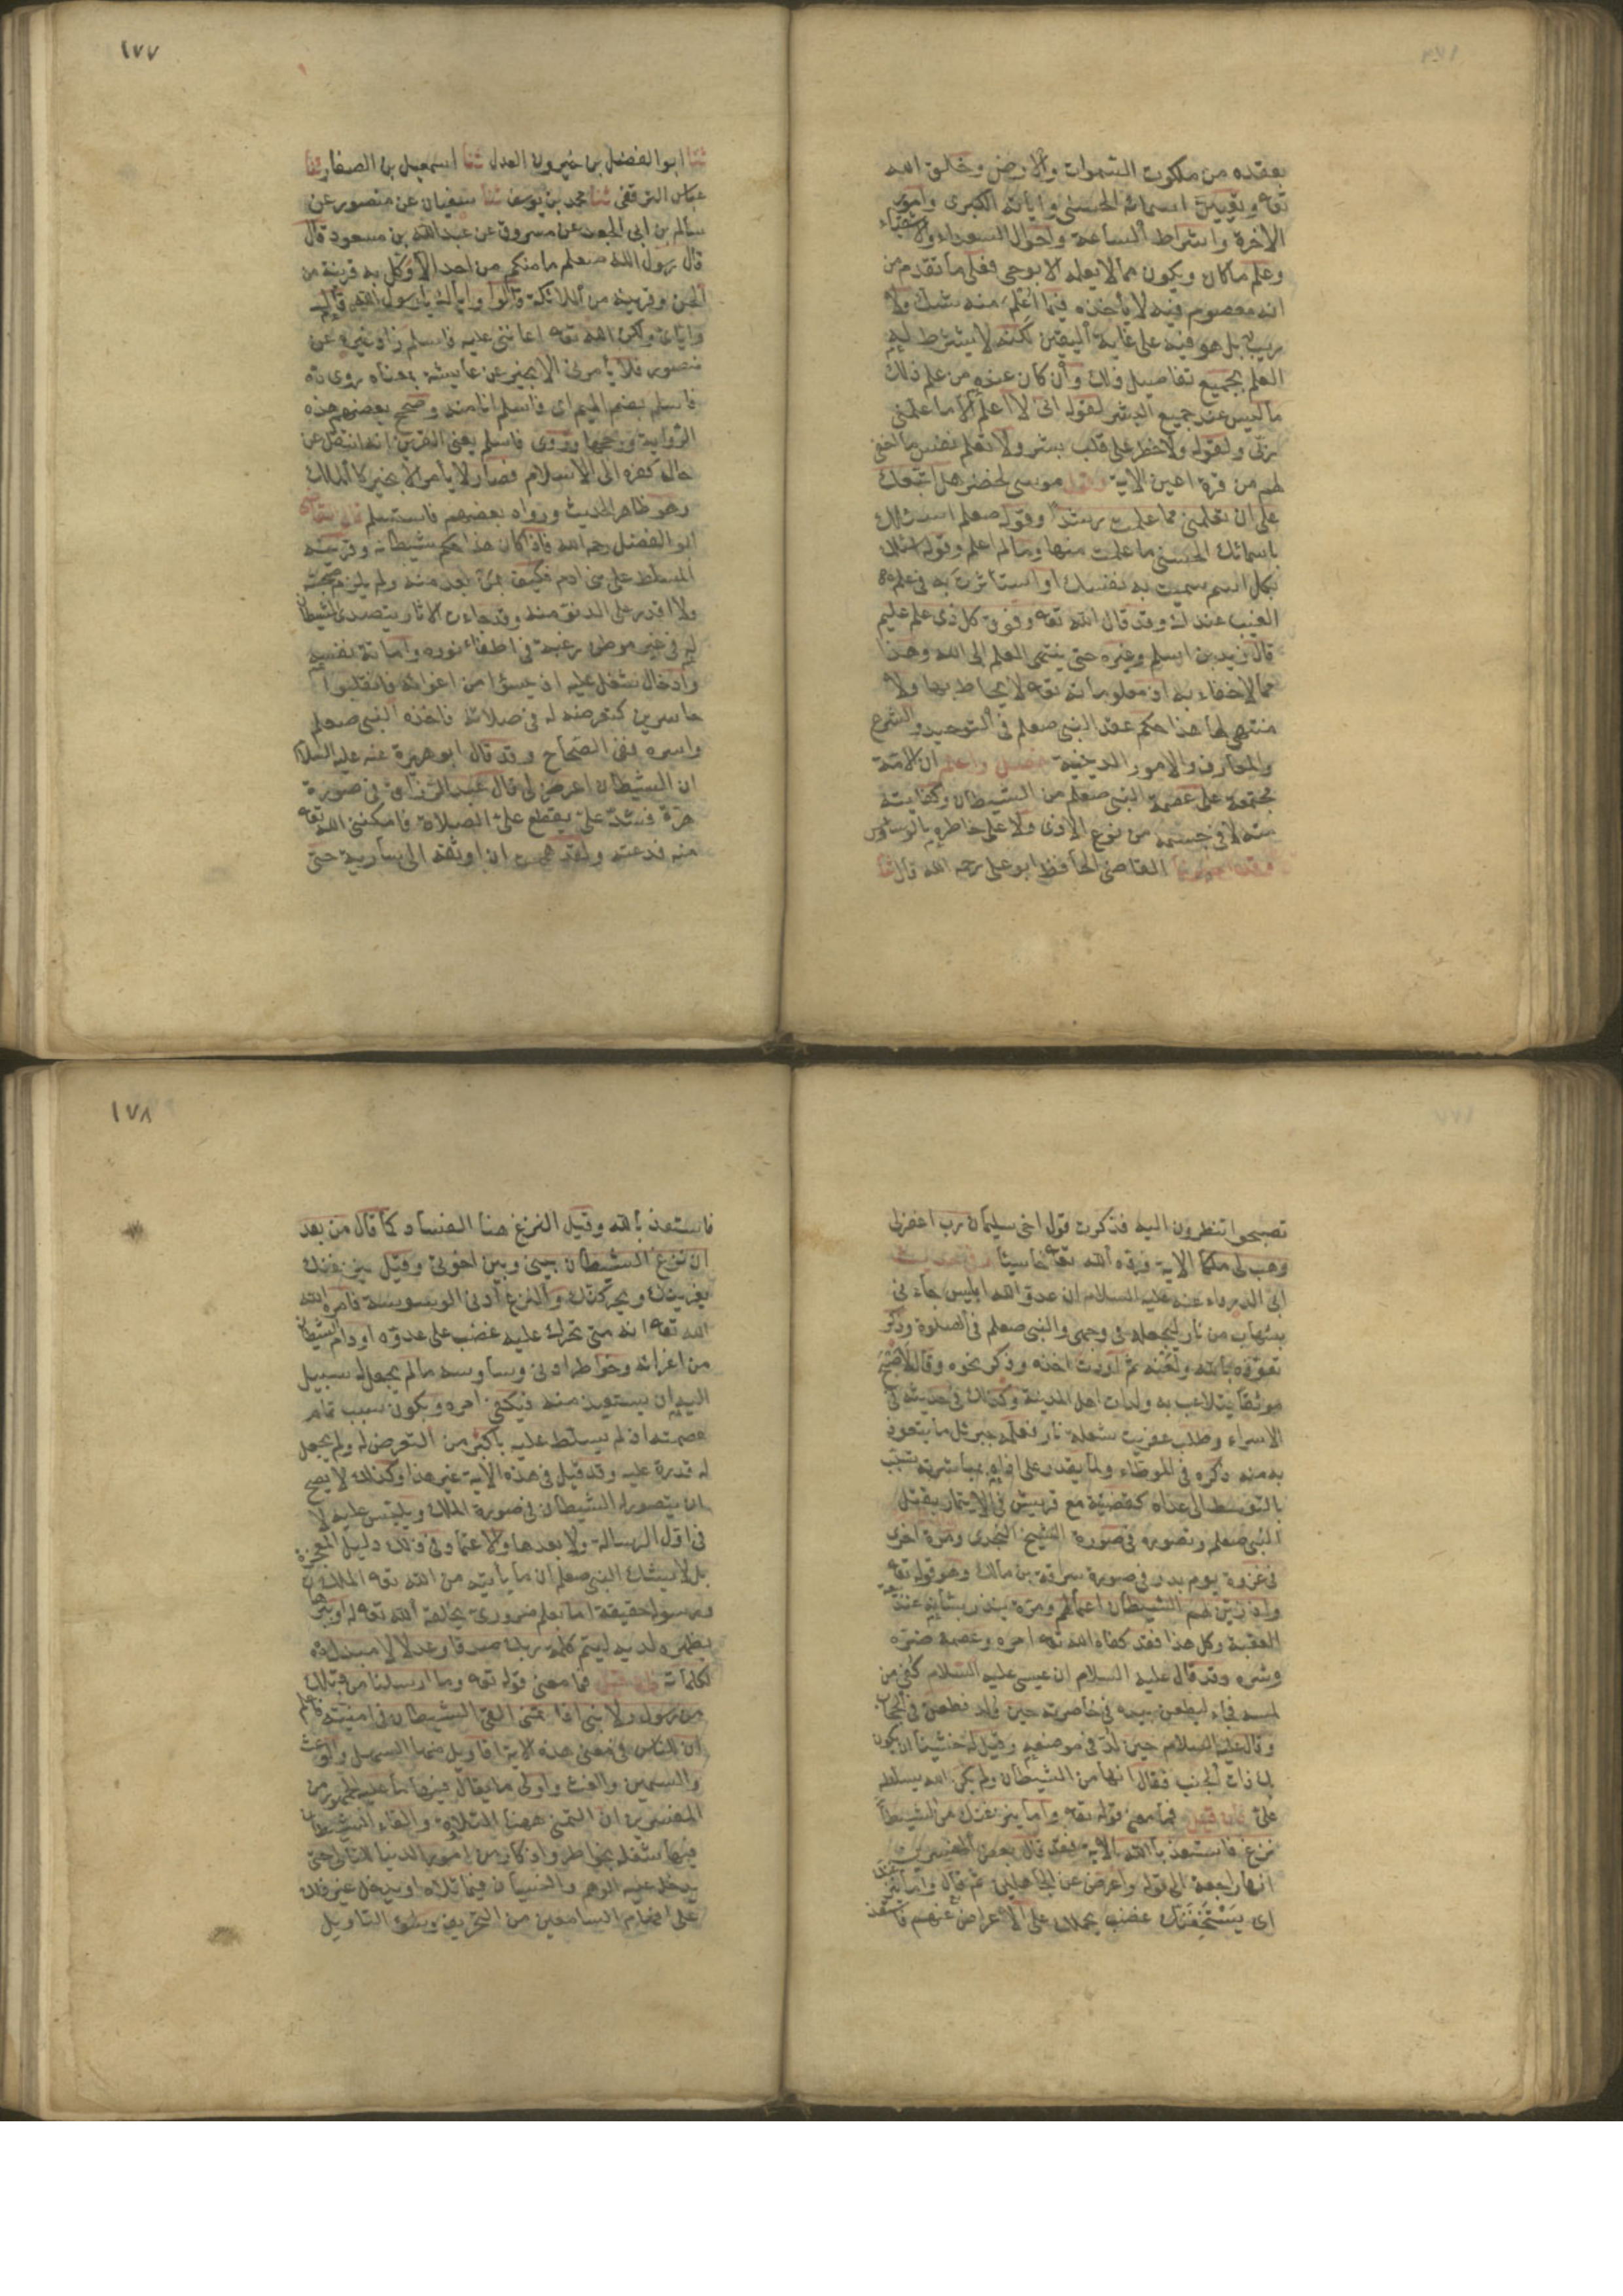 بعقده من ملكوت السموات والارض وخلق الله
تعه وتعيين اسمائه الحسنى واياته الكبرى وامور
الاخرة واشراط الساعة واحوال السعداء والاشقياء
وعلم ما كان ويكون مما لا يعلمه الا بوحى فعلى ما تقدم من
انه معصوم فيه لا يأخذه فيما اعلم منه شك ولا
ريب بل هو فيه على غاية اليقين لكنه لا يشترط له
العلم بجميع تفاصيل ذلك وان كان عنده من علم ذلك
ما ليس عند جميع البشر لقوله انى لا اعلم الا ما علمنى
ربى ولقوله ولا خطر على قلب بشر ولا تعلم نفس ما اخفى
لهم من قرة اعين الاية وقول موسى لخضر هل اتبعك
على ان تعلمنى مما علمت رشدا وقوله صعلم اسئلك
باسمائك الحسنى ما علمت منها وما لم اعلم وقوله اسئلك
بكل اسم سميت به نفسك او استأثرت به فى علم
الغيب عندك وقد قال الله تعه وفوق كل ذى علم عليم
قال زيد بن اسلم وغيره حتى ينتهى العلم الى الله وهذا
مما لا خفاء به اذ معلوماته تعه لا يحاط بها ولا
منتهى لها هذا حكم عقد النبى صعلم فى التوحيد والشرع
والمعارف والامور الدينية فصل واعلم ان الامة
مجتمعة على عصمة النبى صعلم من الشيطان وكفايته
منه لا فى جسمه من نوع الاذى ولا على خاطره بالوساوس
وقد اخبرنا القاضى الحافظ ابو على رحمه الله قال ثنا
١٧٧
ثنا ابو الفضل بن خيرون العدل ثنا اسمعيل بن الصفار ثنا
عباس الترقفى ثنا محمد بن يوسف ثنا سفيان عن منصور عن
سالم بن ابى الجعد عن مسروق عن عبد الله بن مسعود قال
قال رسول الله صعلم ما منكم من احد الا وكل به قرينه من
الجن وقرينه من الملائكة قالوا واياك يا رسول الله قال
واياى ولكن الله تعه اعاننى عليه فاسلم زاد غيره عن
منصور فلا يأمرنى الا بخير عن عايشة بمعناه روى
فاسلم بضم الميم اى فاسلم انا منه وصحح بعضهم هذه
الرواية ورجحها وروى فاسلم يعنى القرين انه انتقل عن
حال كفره الى الاسلام فصار لا يأمر الا بخير كالملك
وهو ظاهر الحديث ورواه بعضهم فاستسلم قال القاضى
ابو الفضل رحمه الله فاذا كان هذا حكم شيطانه وقرينه
المسلط على بنى ادم فكيف بمن بعد منه ولم يلزم صحبته
ولا اقدر على الدنو منه وقد جاءت الاثار بتصدى الشيطان
له فى غير موطن رغبة فى اطفاء نوره واماتة نفسه
وادخال شغل عليه اذ يئسوا من اغوائه فانقلبوا
خاسرين كتعرضه له فى صلاته فاخذه النبى صعلم
واسره ففى الصحاح وقد قال ابو هريرة عنه عليه السلام
ان الشيطان عرض لى قال عبد الرزاق فى صورة
هرة فشد على يقطع على الصلاة فامكننى الله تعه
منه فدعته ولقد هممت ان اوثقه الى سارية حتى
تصبحوا تنظرون اليه فذكرت قول اخى سليمان رب اغفر لى
وهب لى ملكا الاية فرده الله تعه خاسئا وفى حديث
ابى الدرداء عنه عليه السلام ان عدو الله ابليس جاءنى
بشهاب من نار ليجعله فى وجهى والنبى صعلم فى الصلوة وذكر
تعوذه بالله ولعنه ثم اردت اخذه وذكر نحوه وقال لاصبح
موثقا يتلاعب به ولدان اهل المدينة وكذلك فى حديثه فى
الاسراء وطلب عفريت بشعلة نار فعلمه جبرئل ما يتعوذ
به منه ذكره فى الموطاء ولما يقدر على اذاه بمباشرته تسبب
بالتوسط الى عداه كقضيته مع قريش فى الايتمار بقتل
النبى صعلم وتصوره فى صورة الشيخ النجدى ومرة اخرى
فى غزوة يوم بدر فى صورة سراقة بن مالك وهو قوله تعه
واذ زين لهم الشيطان اعمالهم ومرة ينذر بشأنه عند بيعة
العقبة وكل هذا فقد كفاه الله تعه امره وعصمه ضره
وشره وقد قال عليه السلام ان عيسى عليه السلام كفى من
لمسه فجاء ليطعن بيده فى خاصرته حين ولد فطعن فى الحجاب
وقال عليه السلام حين لد فى مرضه وقيل له خشينا ان يكون
بك ذات الجنب فقال انها من الشيطان ولم يكن الله يسلطه
على فان قيل فما معنى قوله تعه واما ينزغنك من الشيطان
نزغ فاستعذ بالله الاية فقد قال بعض المفسرين
انها راجعة الى قوله واعرض عن الجاهلين ثم قال واما ينزغنك
اى يستخفنك غضب يحملك على الاعراض عنهم فاستعذ
١٧٨
فاستعذ بالله وقيل النزغ هنا الفساد كما قال من بعد
ان نزغ الشيطان بينى وبين اخوتى وقيل ينزغنك
يغرينك ويحركنك والنزغ ادنى الوسوسة فامره الله
الله تعه انه متى تحرك عليه غضب على عدوه او رام الشيطان
من اغرائه وخواطر ادنى وساوسه ما لم يجعل له سبيل
اليه ان يستعيذ منه فيكفى امره ويكون سبب تمام
عصمته اذ لم يسلط عليه باكثر من التعرض له ولم يجعل
له قدرة عليه وقد قيل فى هذه الاية غير هذا وكذلك لا يصح
ان يتصور له الشيطان فى صورة الملك ويلبس عليه لا
فى اول الرسالة ولا بعدها والاعتماد فى ذلك دليل المعجزة
بل لا يشك النبى صعلم ان ما يأتيه من الله تعه الملك
ورسوله حقيقة اما بعلم ضرورى يخلقه الله تعه له او ببرهان
يظهره لديه ليتم كلمة ربك صدقا وعدلا لا مبدل
لكلماته فان قيل فما معنى قوله تعه وما ارسلنا من قبلك
من رسول ولا نبى اذا تمنى القى الشيطان فى امنيته فاعلم
ان للناس فى معنى هذه الاية اقاويل منها السهل والوعث
والسمين والغث واولى ما يقال فيها ما عليه الجمهور من
المفسرين ان التمنى ههنا التلاوة والقاء الشيطان
فيها شغله بخواطر واذكار من امور الدنيا للتالى حتى
يدخل عليه الوهم والنسيان فيما تلاه او يدخل غير ذلك
على افهام السامعين من التحريف وسوء التاويل